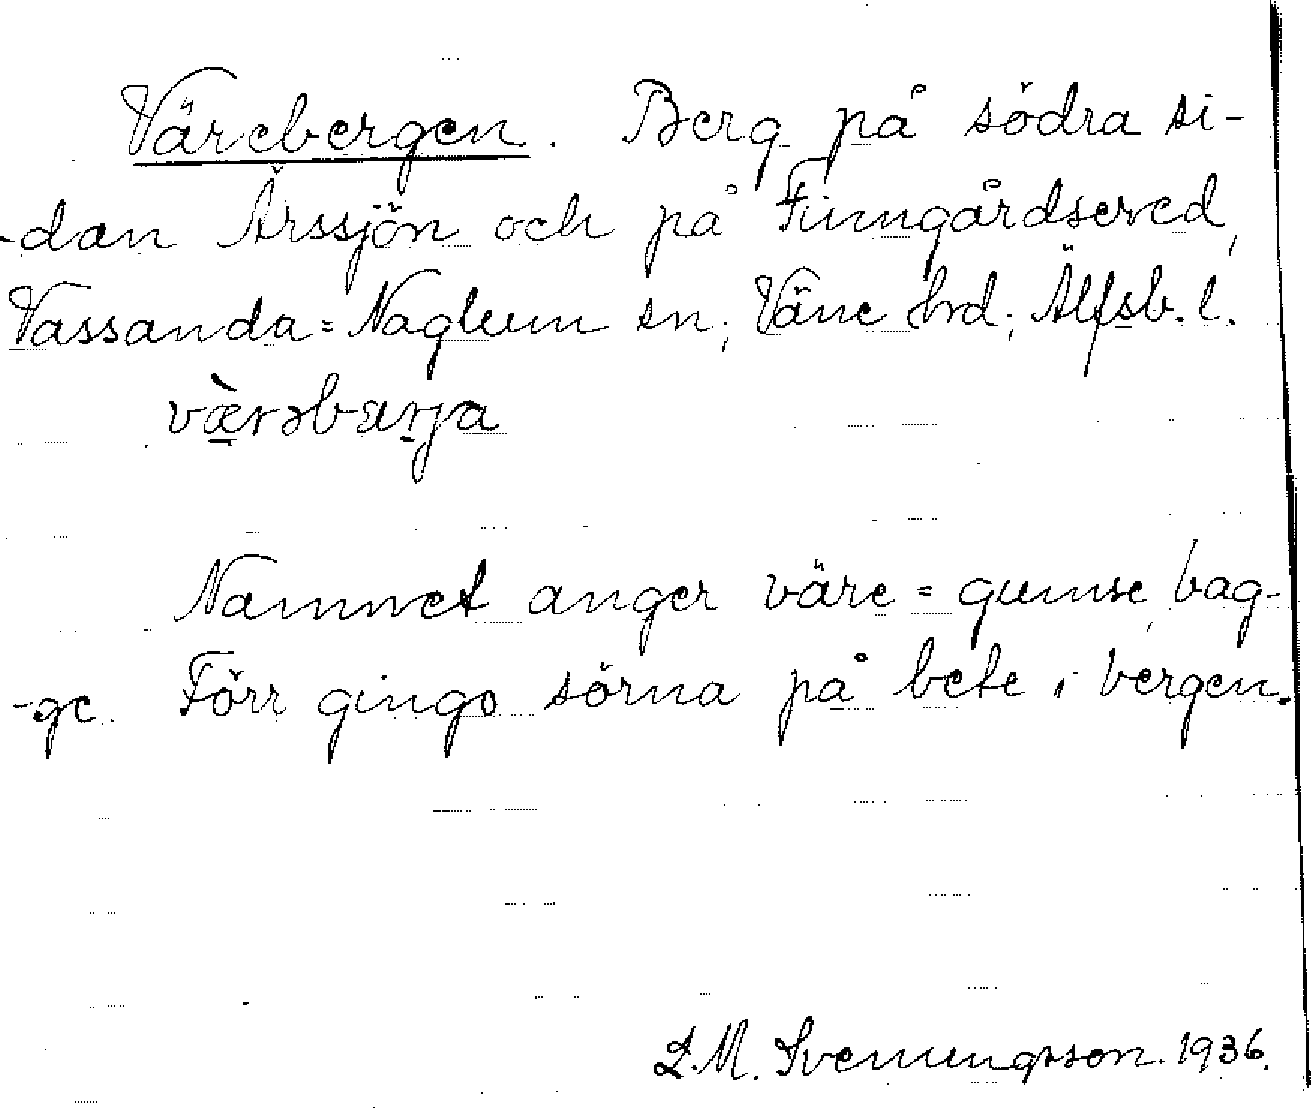 Värebergen. Berg på södra si-
-dan Årssjön och på Finngårdsered,
Vassanda=Naglum sn, Väne hrd, Älfsb. l.
væ̀rəbærja
Namnet anger väre = gumse, bag-
-ge. Förr gingo sörna på bete i bergen.
L.M. Svenungsson. 1936.